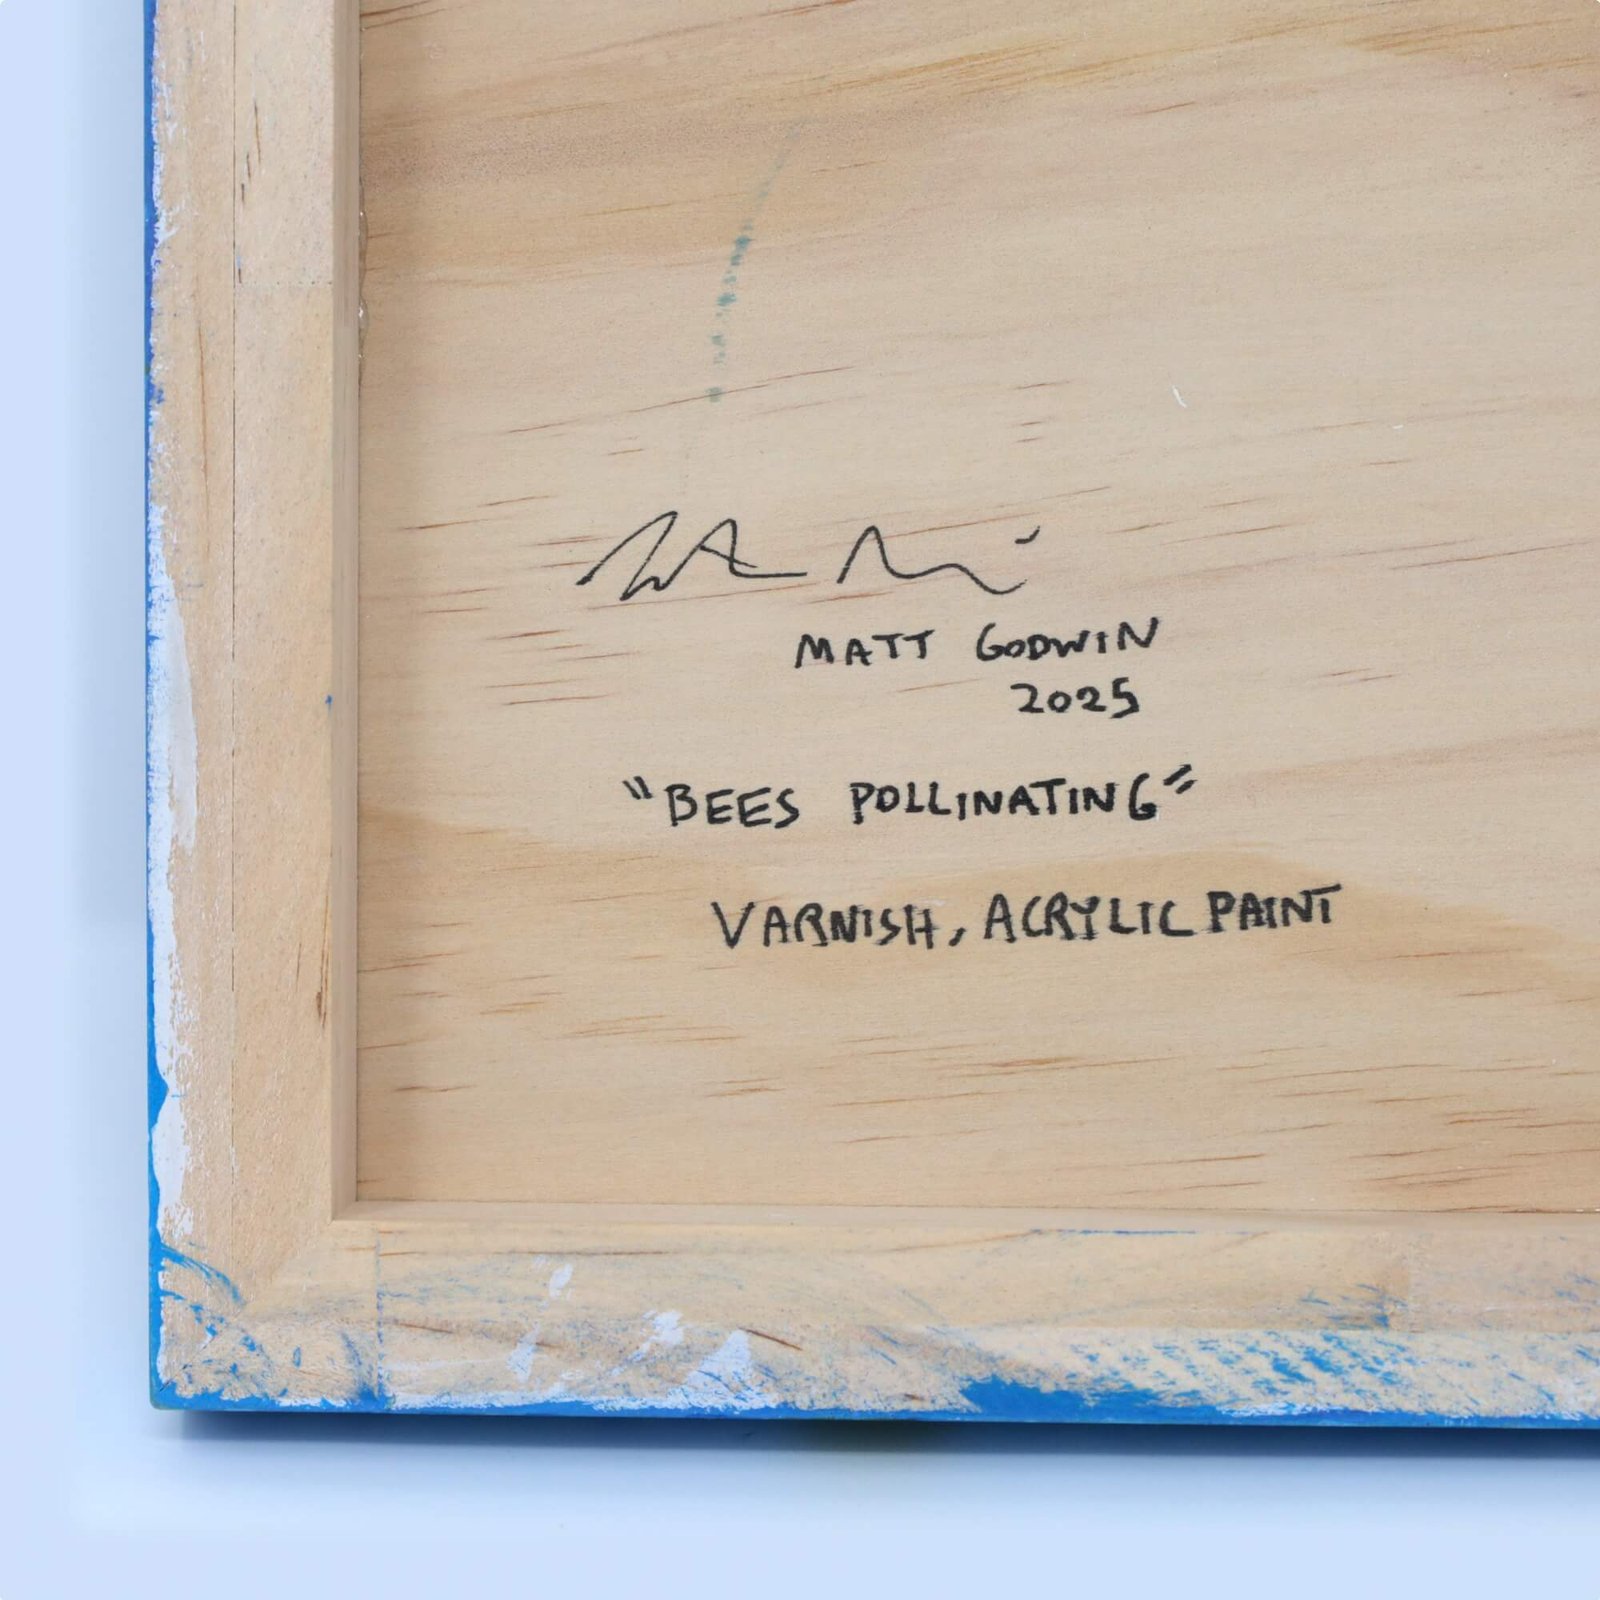 MATT GODWIN
2025
"BEES POLLINATING"
VARNISH, ACRYLIC PAINT